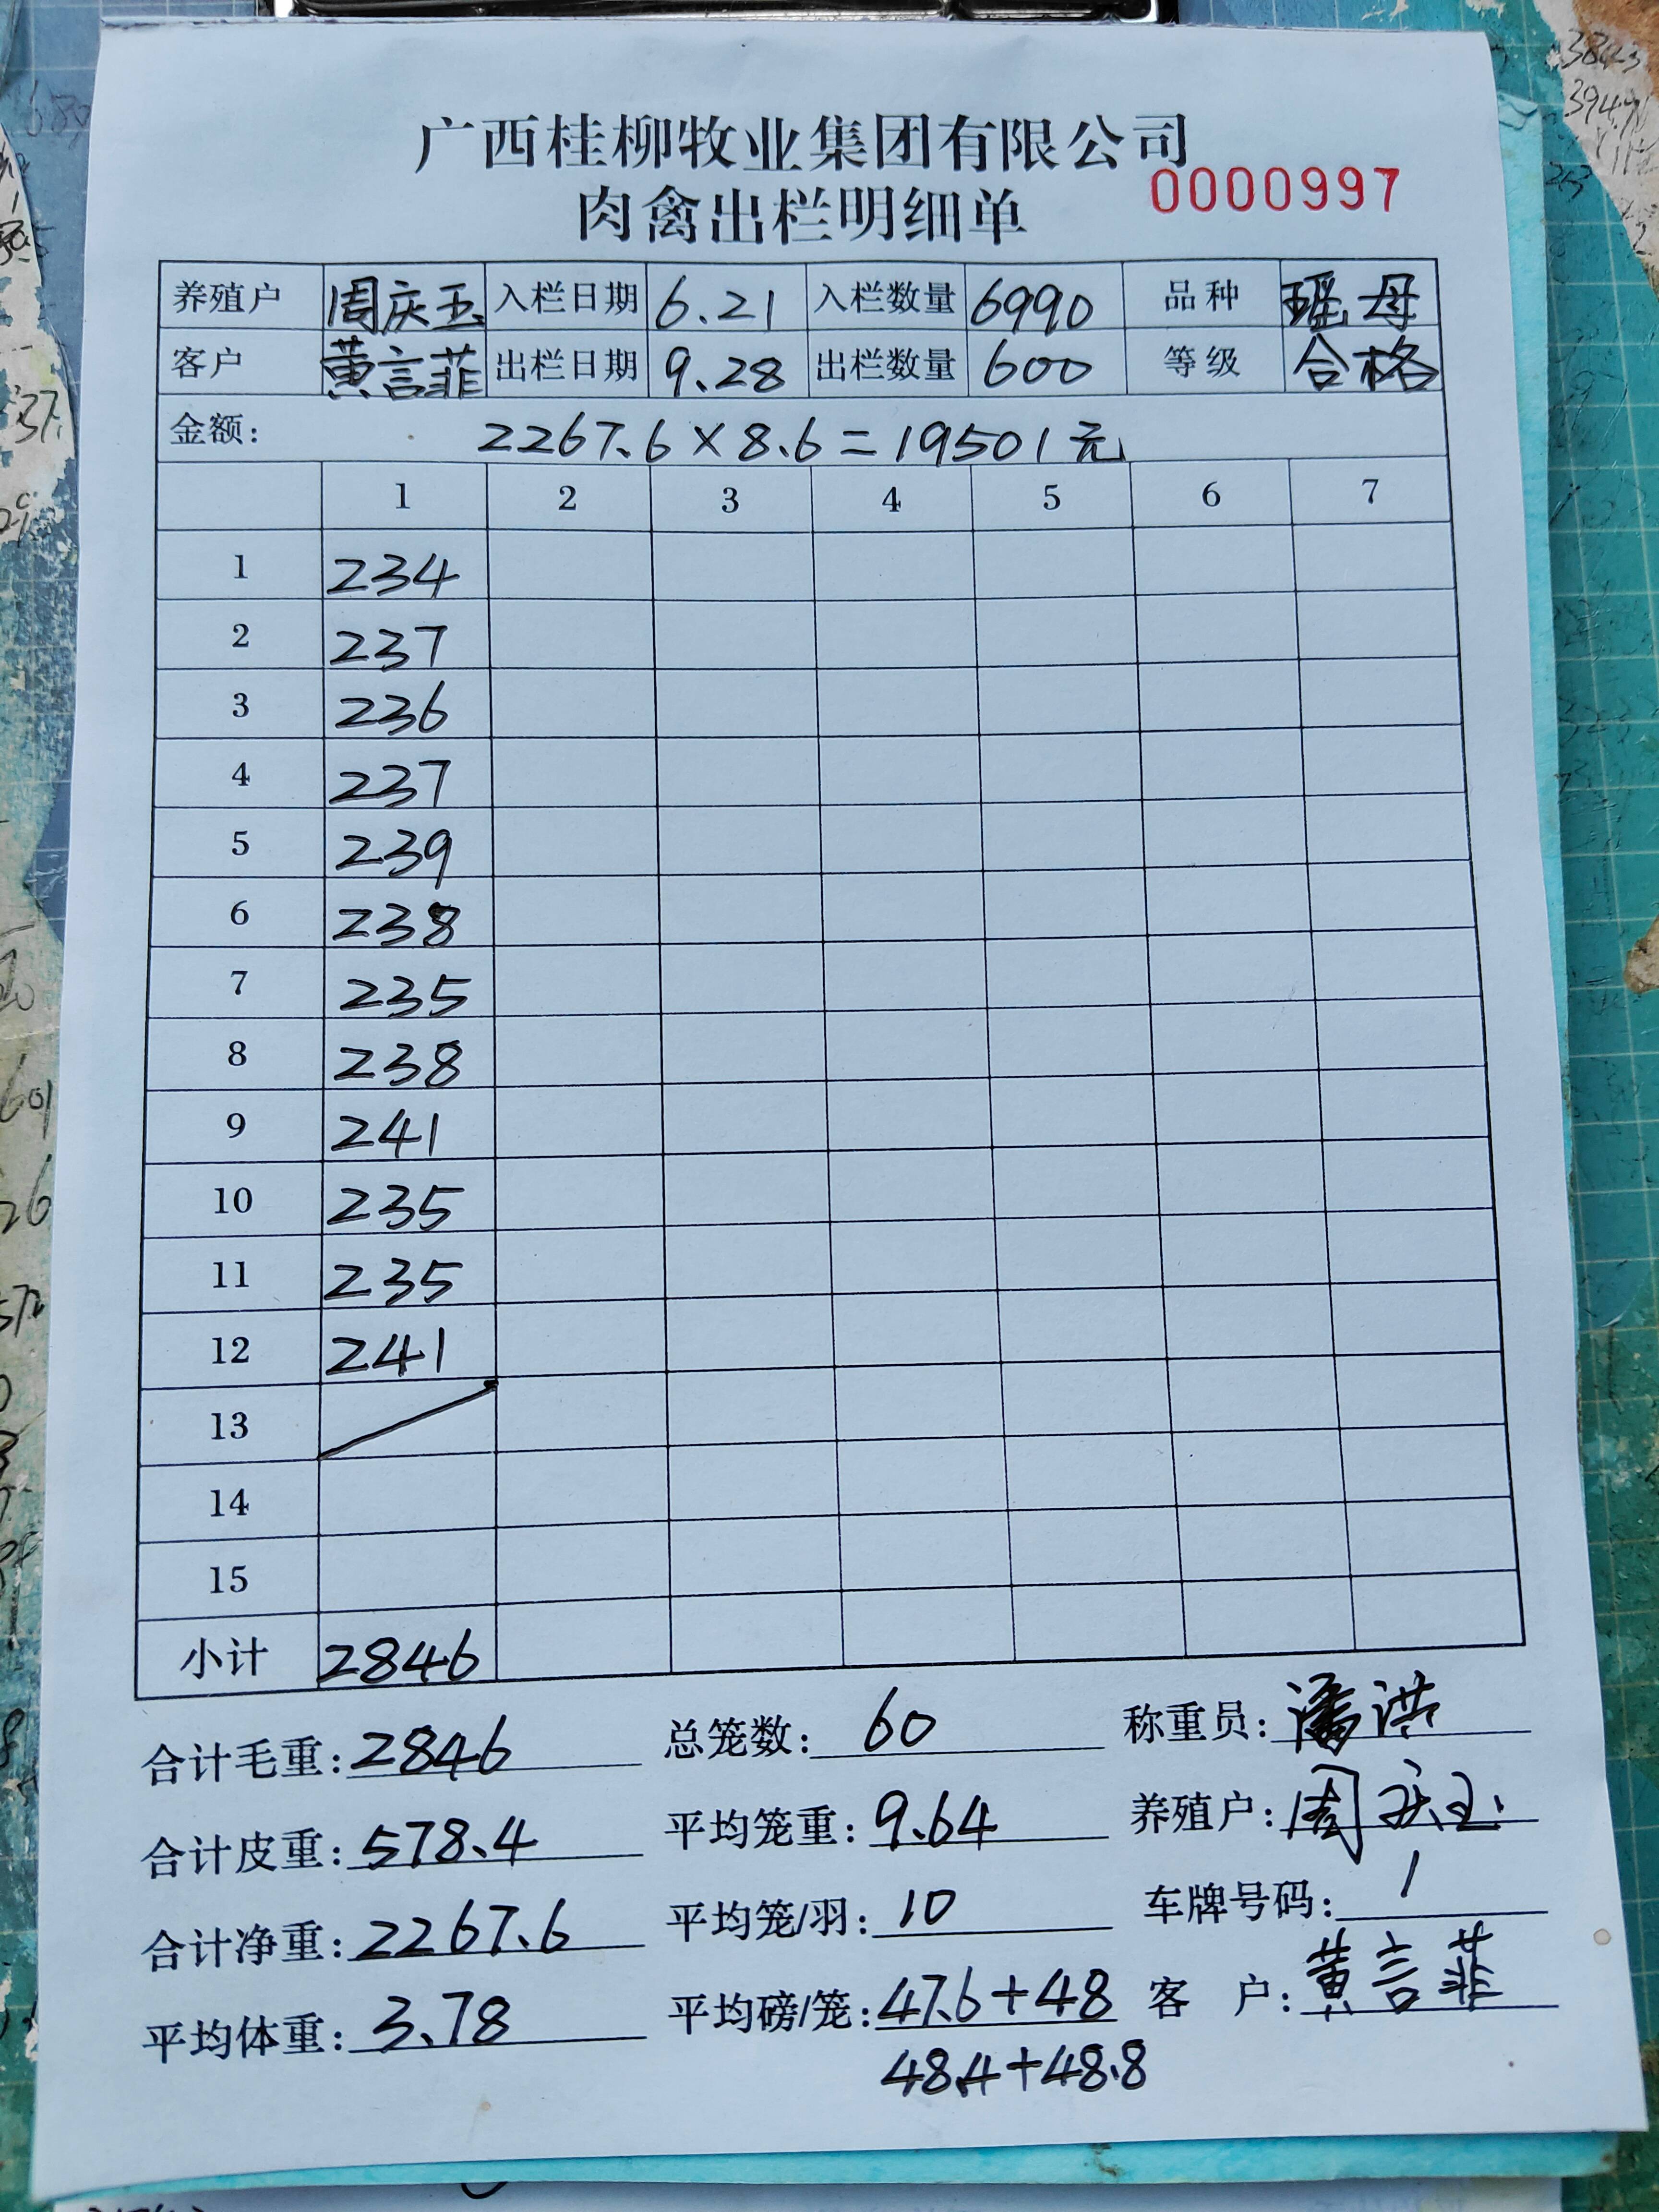 广西桂柳牧业集团有限公司
肉禽出栏明细单 0000997
养殖户 周庆玉 入栏日期 6.21 入栏数量 6990 品种 瑶母
客户 黄言菲 出栏日期 9.28 出栏数量 600 等级 合格
金额: 2267.6×8.6=19501元
1 2 3 4 5 6 7
1 234
2 237
3 236
4 237
5 239
6 238
7 235
8 238
9 241
10 235
11 235
12 241
13
14
15
小计 2846
合计毛重: 2846 总笼数: 60 称重员: 潘洪
合计皮重: 578.4 平均笼重: 9.64 养殖户: 周庆玉
合计净重: 2267.6 平均笼/羽: 10 车牌号码: 1
平均体重: 3.78 平均磅/笼: 47.6+48 客户: 黄言菲
48.4+48.8